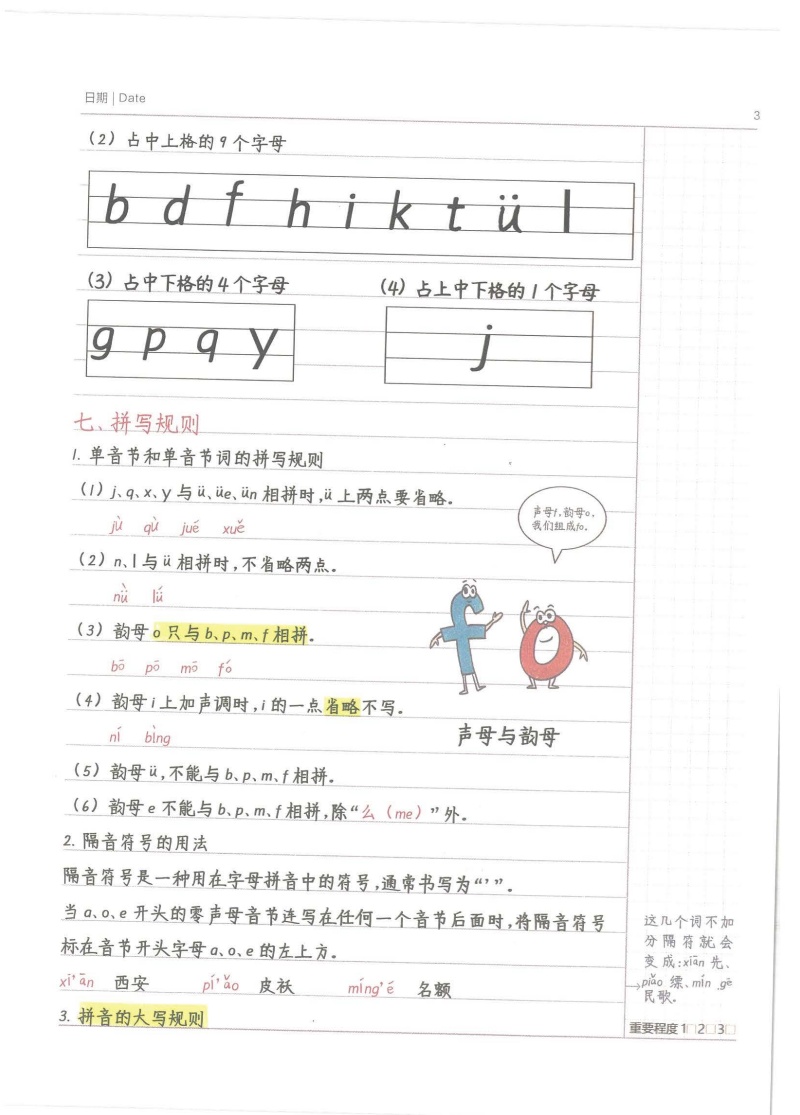 日期 | Date
3
（2）占中上格的9个字母
b d f h i k t ü l
（3）占中下格的4个字母
（4）占上中下格的1个字母
g p q y
j
七、拼写规则
1. 单音节和单音节词的拼写规则
（1）j、q、x、y与ü、üe、ün相拼时，ü上两点要省略。
jù qù jué xuě
（2）n、l与ü相拼时，不省略两点。
nǜ lǘ
（3）韵母o只与b、p、m、f相拼。
bō pō mō fó
（4）韵母i上加声调时，i的一点省略不写。
ní bìng
（5）韵母ü，不能与b、p、m、f相拼。
（6）韵母e不能与b、p、m、f相拼，除“么（me）”外。
声母f，韵母o，
我们组成fo。
f o
声母与韵母
2. 隔音符号的用法
隔音符号是一种用在字母拼音中的符号，通常书写为“’”。
当a、o、e开头的零声母音节连写在任何一个音节后面时，将隔音符号
标在音节开头字母a、o、e的左上方。
xī’ān 西安 pí’ǎo 皮袄 míng’é 名额
3. 拼音的大写规则
这几个词不加
分隔符就会
变成：xiān先、
→piǎo缥、mín gē
民歌。
重要程度1□2□3□